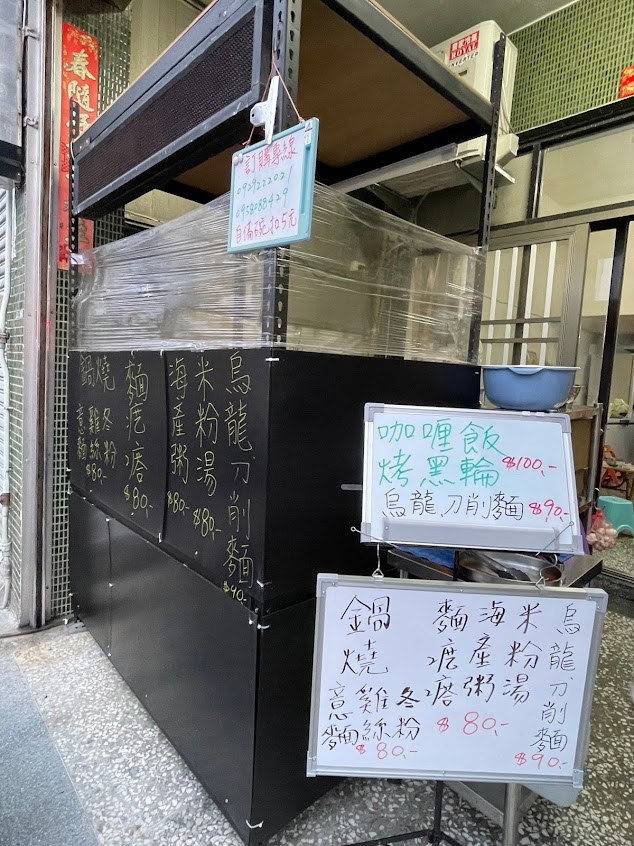 春隨
ROYAL
INVERTER
訂購專線
0929222021
0958088429
自備碗扣5元
鍋燒
意麵
雞絲
冬粉
$80.-
麵疙瘩
$80.-
海產粥
$80.-
米粉湯
$80.-
烏龍刀削麵
$90.-
咖哩飯
烤黑輪 $100.-
烏龍刀削麵 $90.-
鍋燒
意麵
雞絲
冬粉
$80.-
麵疙瘩
海產粥
米粉湯
$80.-
烏龍刀削麵
$90.-